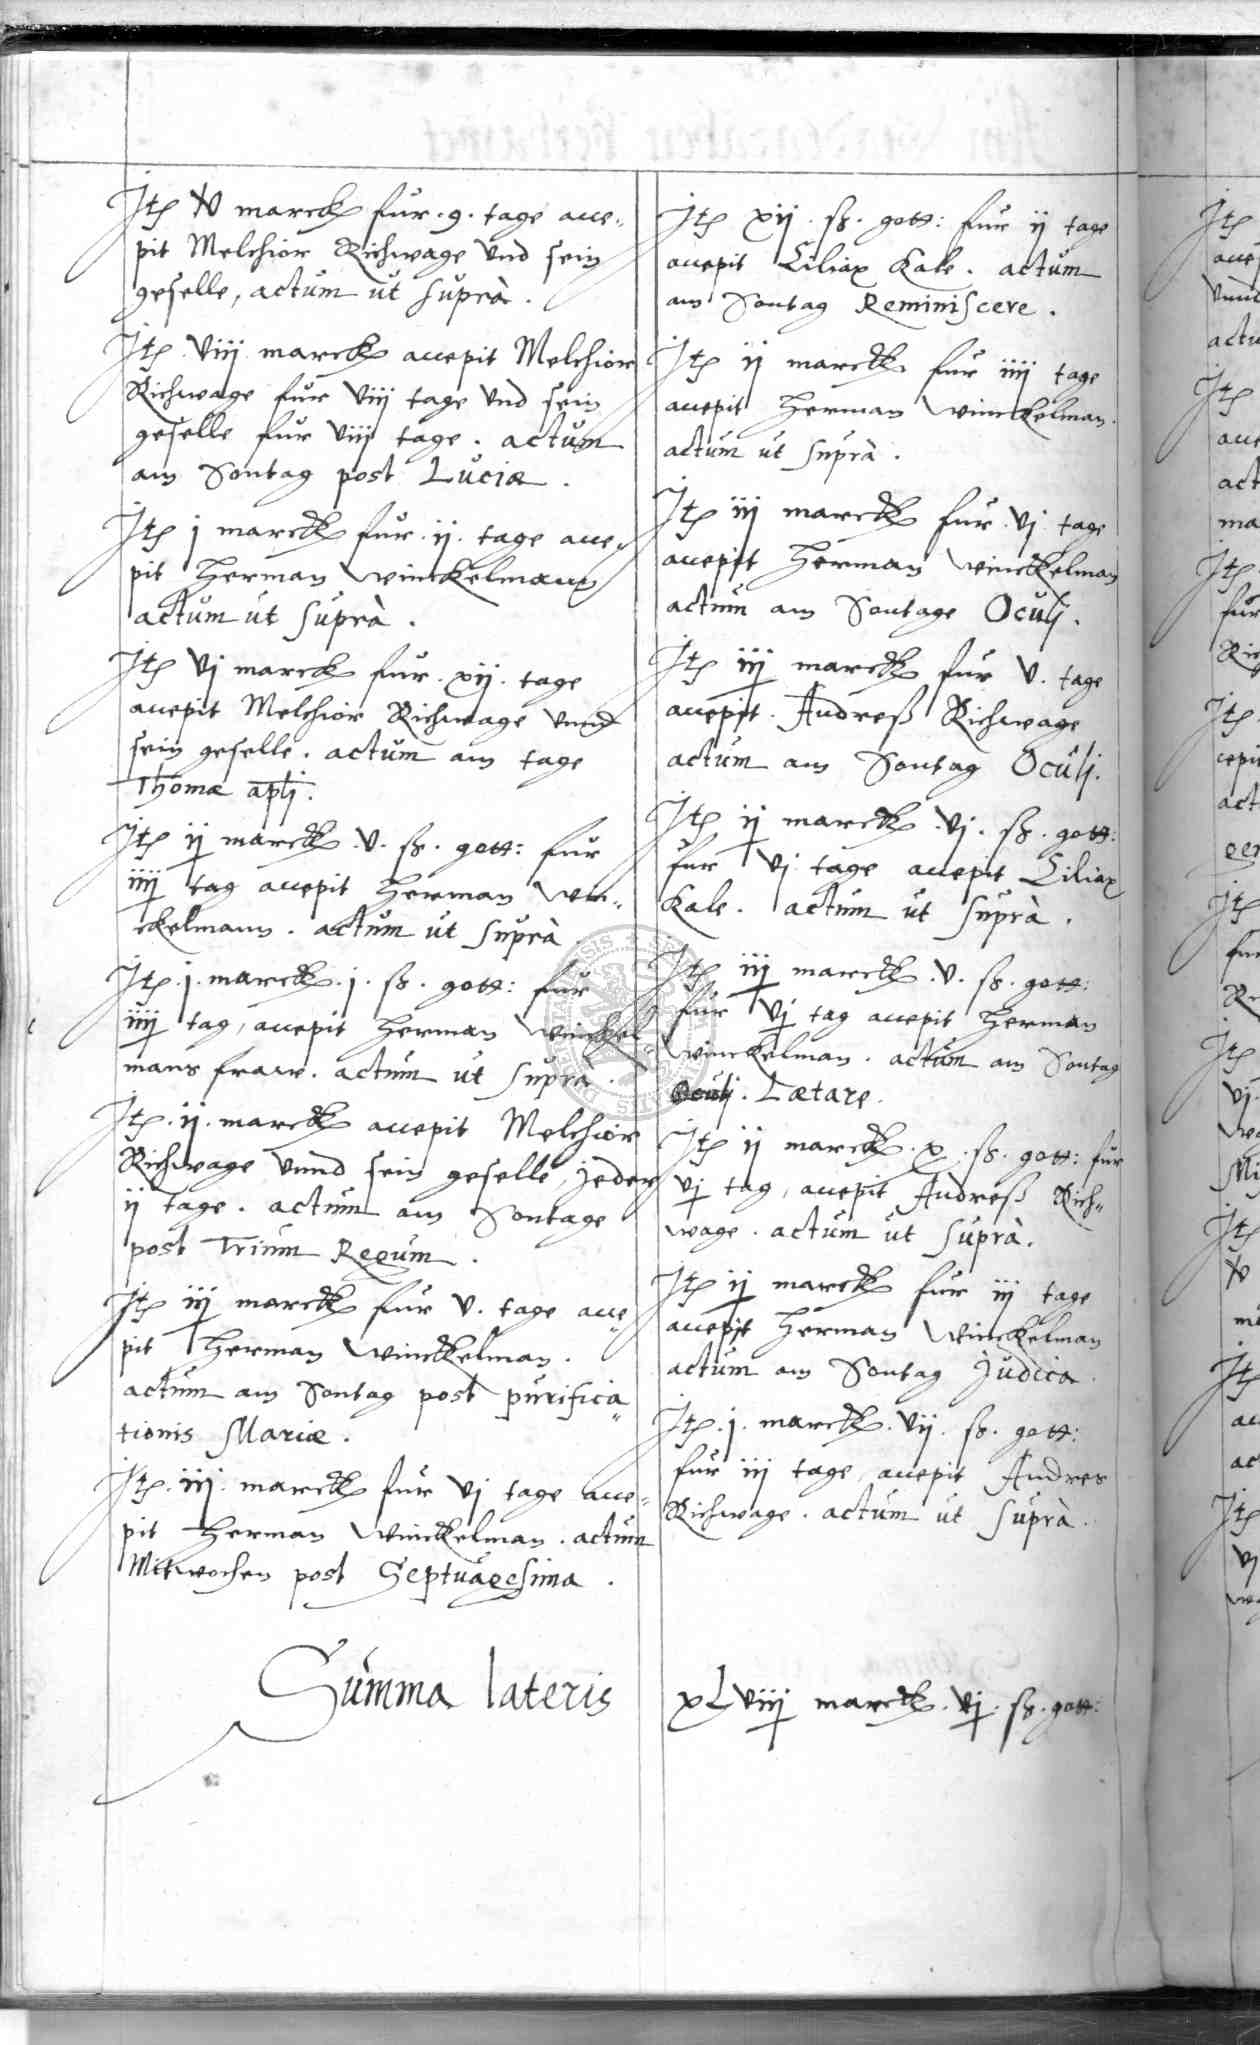 Jtem V marck fur .9. tage acce=
pit Melchior Richwage Vnd sein
geselle, actum ut suprà.
Jtem Viij marck accepit Melchior
Richwage fur Viij tage Vnd sein
geselle fur Viij tage. actum
am Sontag post Luciæ.
Jtem j marck fur .ij. tage acce=
pit Herman Winckelmann
actum ut suprà.
Jtem Vj marck fur .xij. tage
accepit Melchior Richwage Vnnd
sein geselle. actum am tage
Thomæ apli.
Jtem ij marck .V. ß. gott: fur
iiij tag accepit Herman Win=
ckelmann. actum ut suprà
Jtem .j. marck .j. ß. gott: fur
iiij tag, accepit Herman Winckel
mans fraw. actum ut supra.
Jtem .ij. marck accepit Melchior
Richwage Vnnd sein geselle, jeder
ij tage. actum am Sontage
post Trium Regum.
Jtem iij marck fur V. tage acce=
pit Herman Winckelman.
actum am Sontag post purifica=
tionis Mariæ.
Jtem .iij. marck fur Vj tage acce=
pit Herman Winckelman. actum
Mitwochen post Septuagesima.
Jtem xij. ß. gott: fur ij tage
accepit Ciliax Kale. actum
am Sontag Reminiscere.
Jtem ij marck fur iiij tage
accepit Herman Winckelman.
actum ut suprà.
Jtem iij marck fur .Vj. tage
accepit Herman Winckelman
actum am Sontage Oculj.
Jtem iij marck fur V. tage
accepit. Andreß Richwage
actum am Sontag Oculj.
Jtem ij marck .Vj. ß. gott:
fur Vj tage accepit Ciliax
Kale. actum ut suprà.
Jtem iij marck .V. ß. gott:
fur Vj tag accepit Herman
Winckelman. actum am Sontag
Oculj. Lætare.
Jtem ij marck .x. ß. gott: fur
Vj tag, accepit Andreß Rich=
wage. actum ut suprà.
Jtem ij marck fur iij tage
accepit Herman Winckelman
actum am Sontag Judica.
Jtem .j. marck .Vij. ß. gott:
fur iij tage, accepit Andres
Richwage. actum ut suprà.
Summa lateris xLViij marck .Vj. ß. gott: